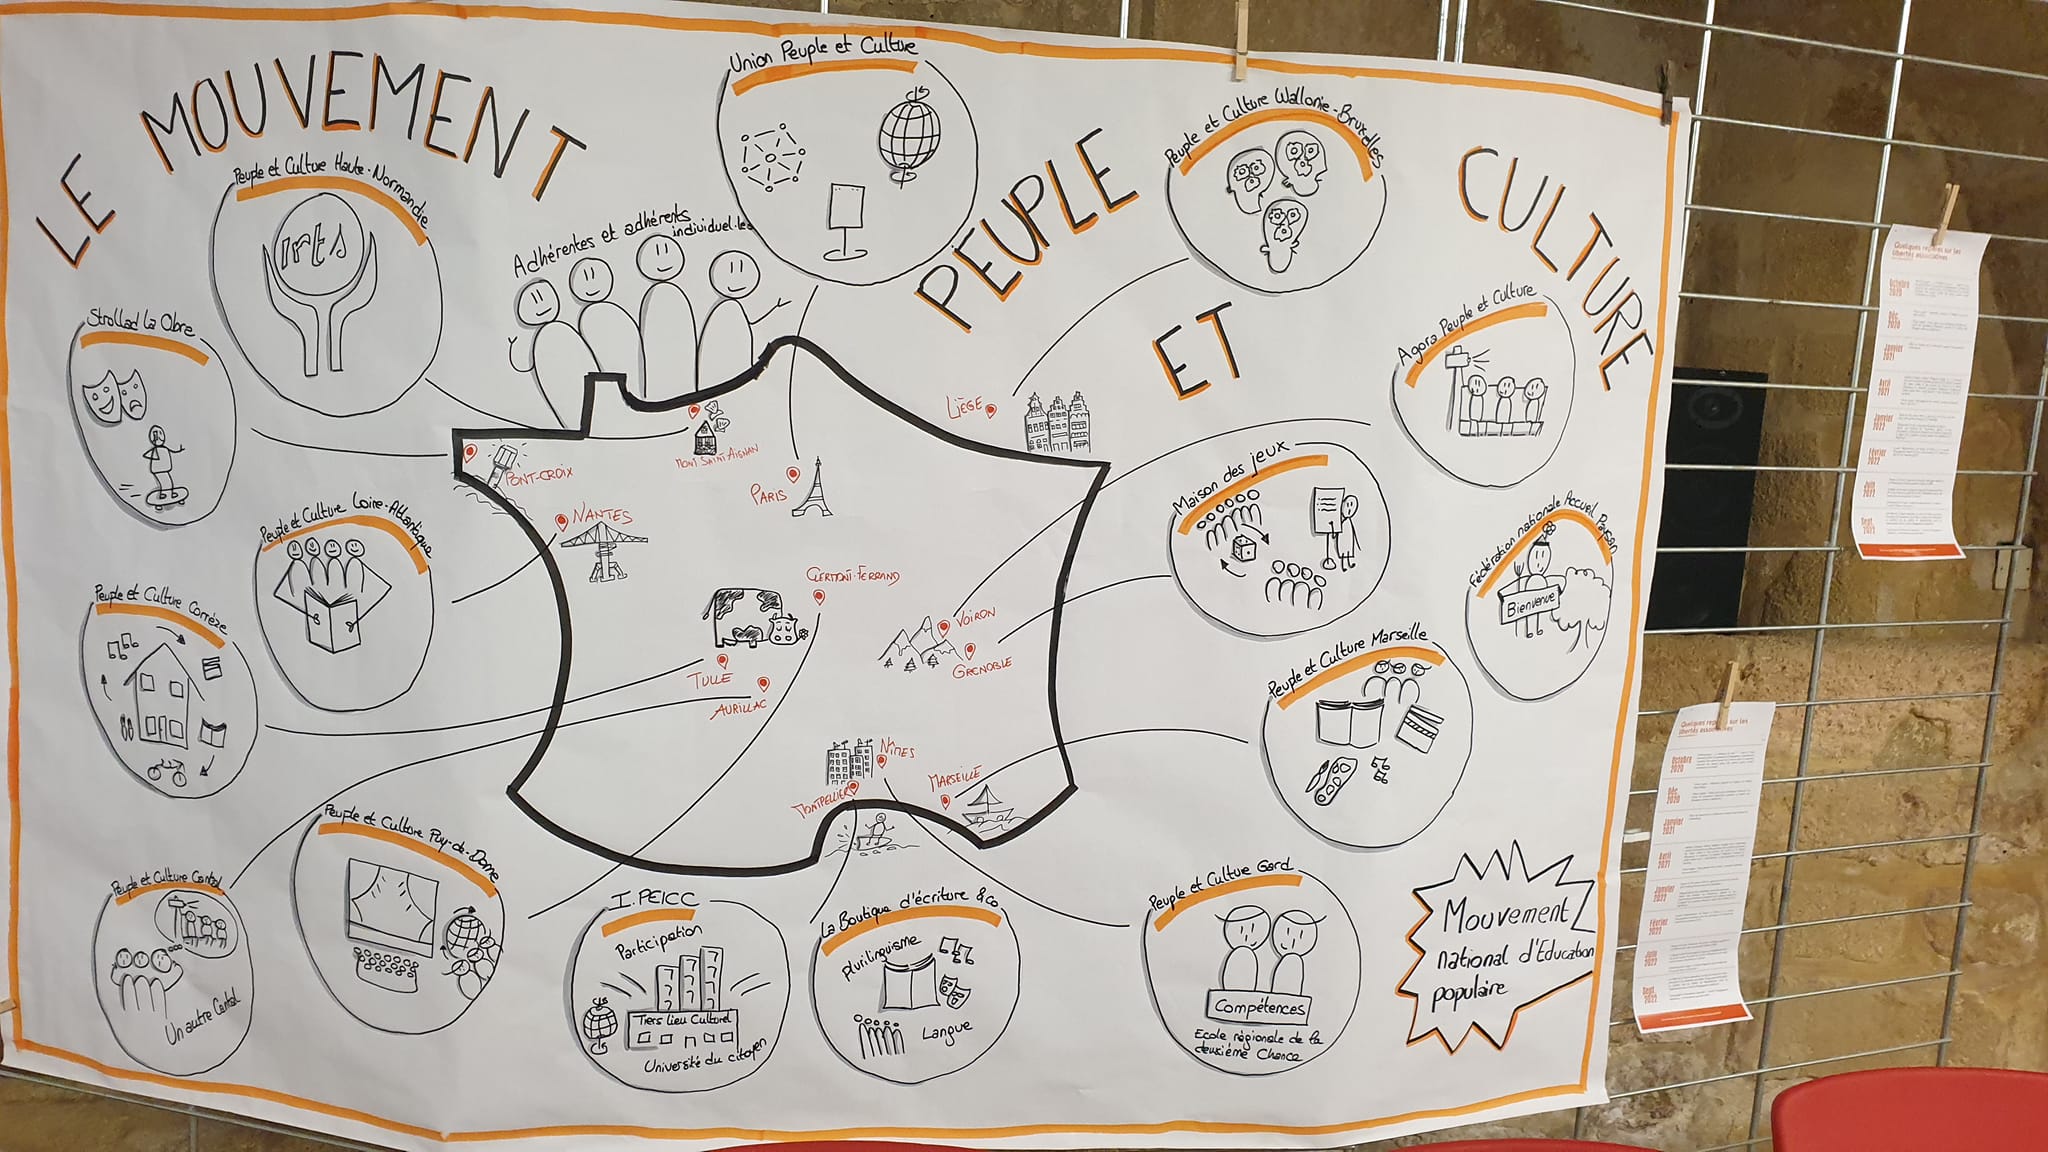 LE MOUVEMENT PEUPLE ET CULTURE
Union Peuple et Culture
Peuple et Culture Wallonie-Bruxelles
Peuple et Culture Haute-Normandie
arts
Adhérentes et adhérents
individuel·les
Strollad La Obre
Agora Peuple et Culture
LIÈGE
MONT SAINT AIGNAN
PONT-CROIX
PARIS
NANTES
Maison des jeux
Peuple et Culture Loire-Atlantique
Fédération nationale Accueil Paysan
Bienvenue
CLERMONT-FERRAND
VOIRON
GRENOBLE
TULLE
AURILLAC
Peuple et Culture Corrèze
Peuple et Culture Marseille
NÎMES
MARSEILLE
MONTPELLIER
Peuple et Culture Puy-de-Dôme
Peuple et Culture Cantal
Un autre Cantal
I.PEICC
Participation
Tiers lieu Culturel
Université du citoyen
La Boutique d'écriture & co
plurilinguisme
Langue
Peuple et Culture Gard
Compétences
Ecole régionale de la
deuxième Chance
Mouvement
national d'Education
populaire
Quelques repères sur les
libertés associatives
Octobre
2020
Déc.
2020
Janvier
2021
Avril
2021
Janvier
2022
Février
2022
Juin
2022
Sept.
2022
Quelques repères sur les
libertés associatives
Octobre
2020
Déc.
2020
Janvier
2021
Avril
2021
Janvier
2022
Février
2022
Juin
2022
Sept.
2022